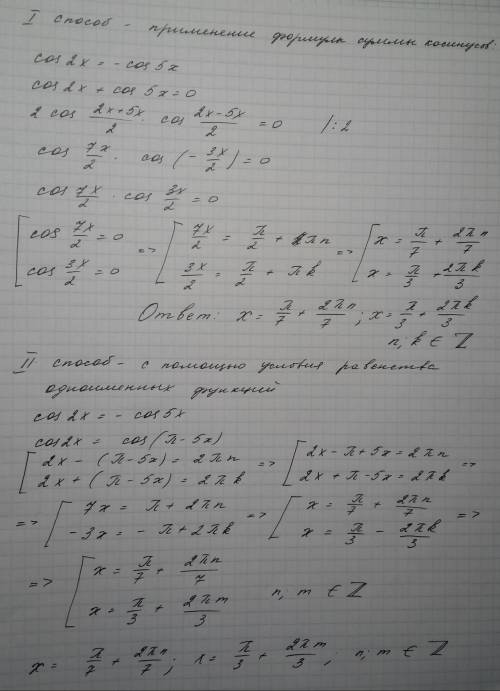 I способ - применение формулы суммы косинусов:
cos 2x = - cos 5x
cos 2x + cos 5x = 0
2 cos (2x+5x)/2 · cos (2x-5x)/2 = 0 /:2
cos 7x/2 · cos (- 3x/2) = 0
cos 7x/2 · cos 3x/2 = 0
[ cos 7x/2 = 0 => [ 7x/2 = π/2 + πn => [ x = π/7 + 2πn/7
cos 3x/2 = 0 3x/2 = π/2 + πk x = π/3 + 2πk/3
Ответ: x = π/7 + 2πn/7 ; x = π/3 + 2πk/3
n, k ∈ Z
II способ - с помощью условия равенства
одноименных функций
cos 2x = - cos 5x
cos 2x = cos (π - 5x)
[ 2x - (π - 5x) = 2πn => [ 2x - π + 5x = 2πn =>
2x + (π - 5x) = 2πk 2x + π - 5x = 2πk
=> [ 7x = π + 2πn => [ x = π/7 + 2πn/7 =>
-3x = - π + 2πk x = π/3 - 2πk/3
=> [ x = π/7 + 2πn/7
x = π/3 + 2πm/3 n, m ∈ Z
x = π/7 + 2πn/7 ; x = π/3 + 2πm/3 ; n; m ∈ Z